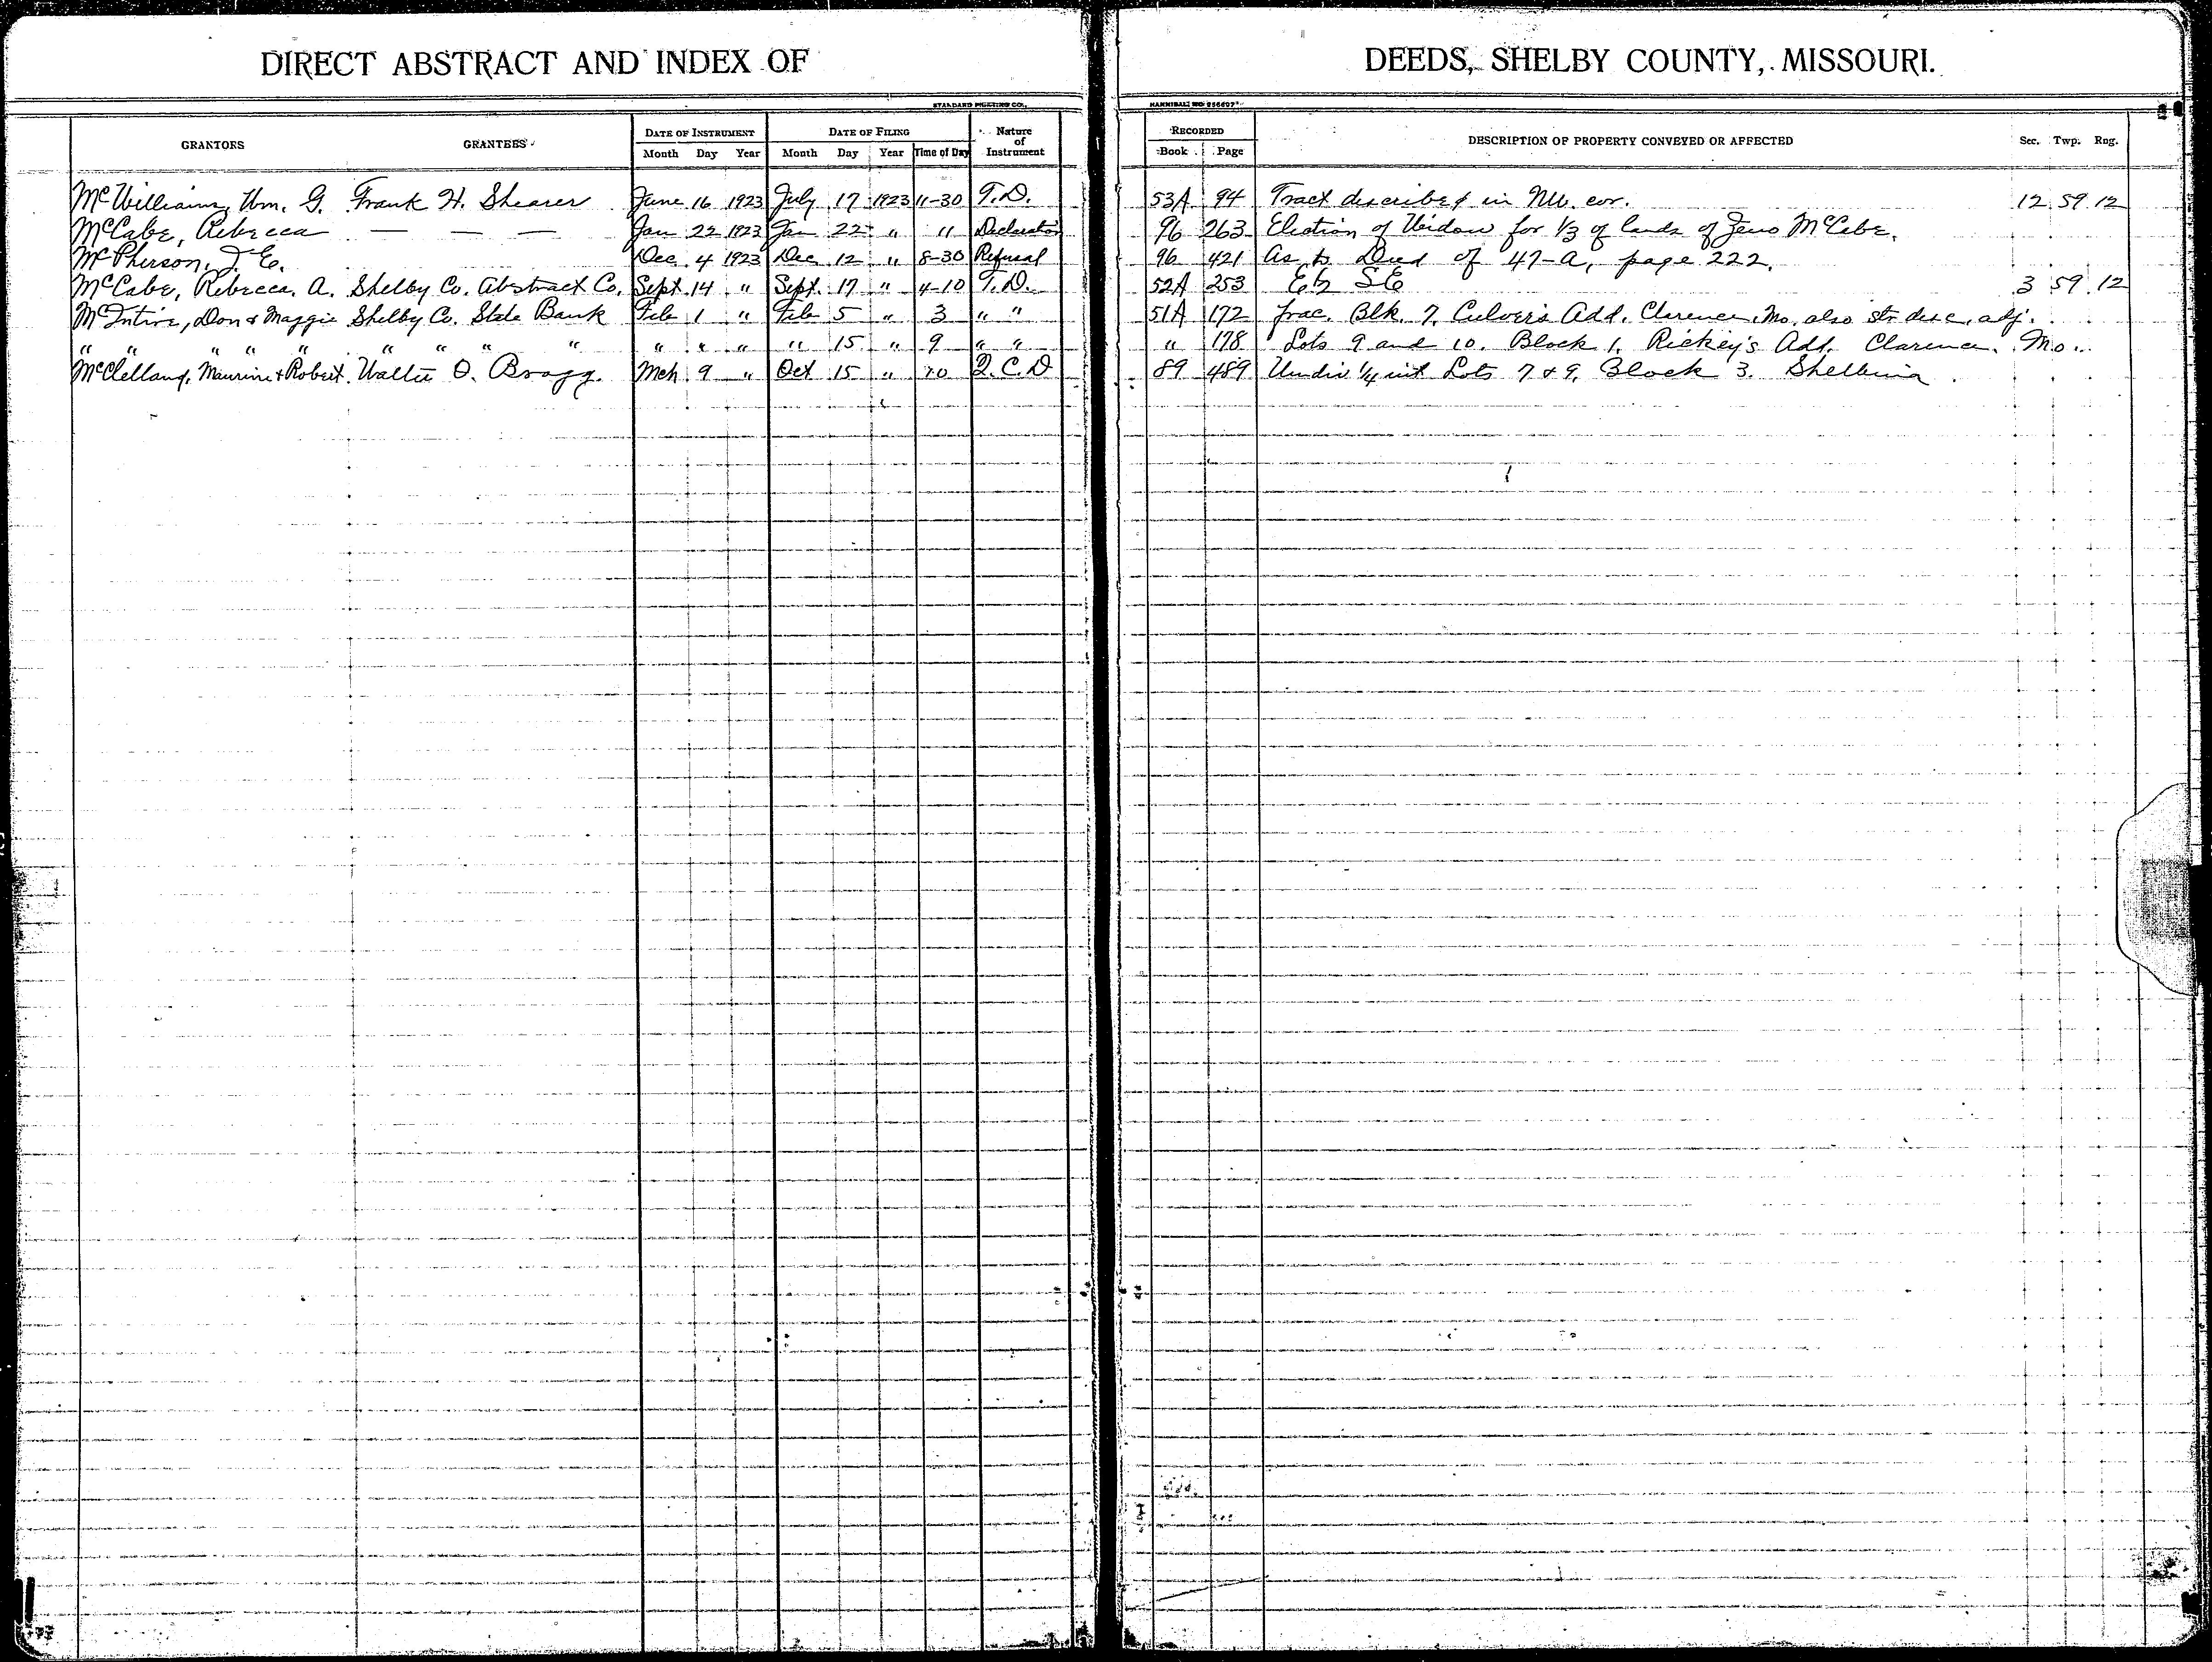 DIRECT ABSTRACT AND INDEX OF DEEDS, SHELBY COUNTY, MISSOURI.
STANDARD PRINTING CO., HANNIBAL, MO
GRANTORS GRANTEES DATE OF INSTRUMENT DATE OF FILING Nature of Instrument RECORDED DESCRIPTION OF PROPERTY CONVEYED OR AFFECTED Sec. Twp. Rng.
Month Day Year Month Day Year Time of Day Book Page
McWilliams, Wm. G. Frank H. Shearer June 16 1923 July 17 1923 11-30 T.D. 53A 94 Tract described in NW. cor. 12 59 12
McCabe, Rebecca — — — Jan 22 1923 Jan 22 " 11 Declaration 96 263 Election of Widow for 1/3 of lands of Zeno McCabe.
McPherson, E. Dec. 4 1923 Dec 12 " 8-30 Refusal 96 421 As to Deed of 47-A, page 222.
McCabe, Rebecca. A. Shelby Co. Abstract Co. Sept 14 " Sept. 17 " 4-10 T.D. 52A 253 E½ SE 3 59 12
McIntire, Don & Maggie Shelby Co. State Bank Feb 1 " Feb 5 " 3 " " 51A 172 frac. Blk. 7, Culver's Add. Clarence, Mo. also str. desc. adj.
" " " " " " " " " " " " " " 15 " 9 " " " 178 Lots 9 and 10. Block 1, Rickey's Add. Clarence, Mo..
McClelland, Maurine & Robert. Walter O. Bragg. Mch 9 " Oct 15 " 10 Q.C.D 89 489 Undiv ¼ int Lots 7 & 9, Block 3. Shelbina